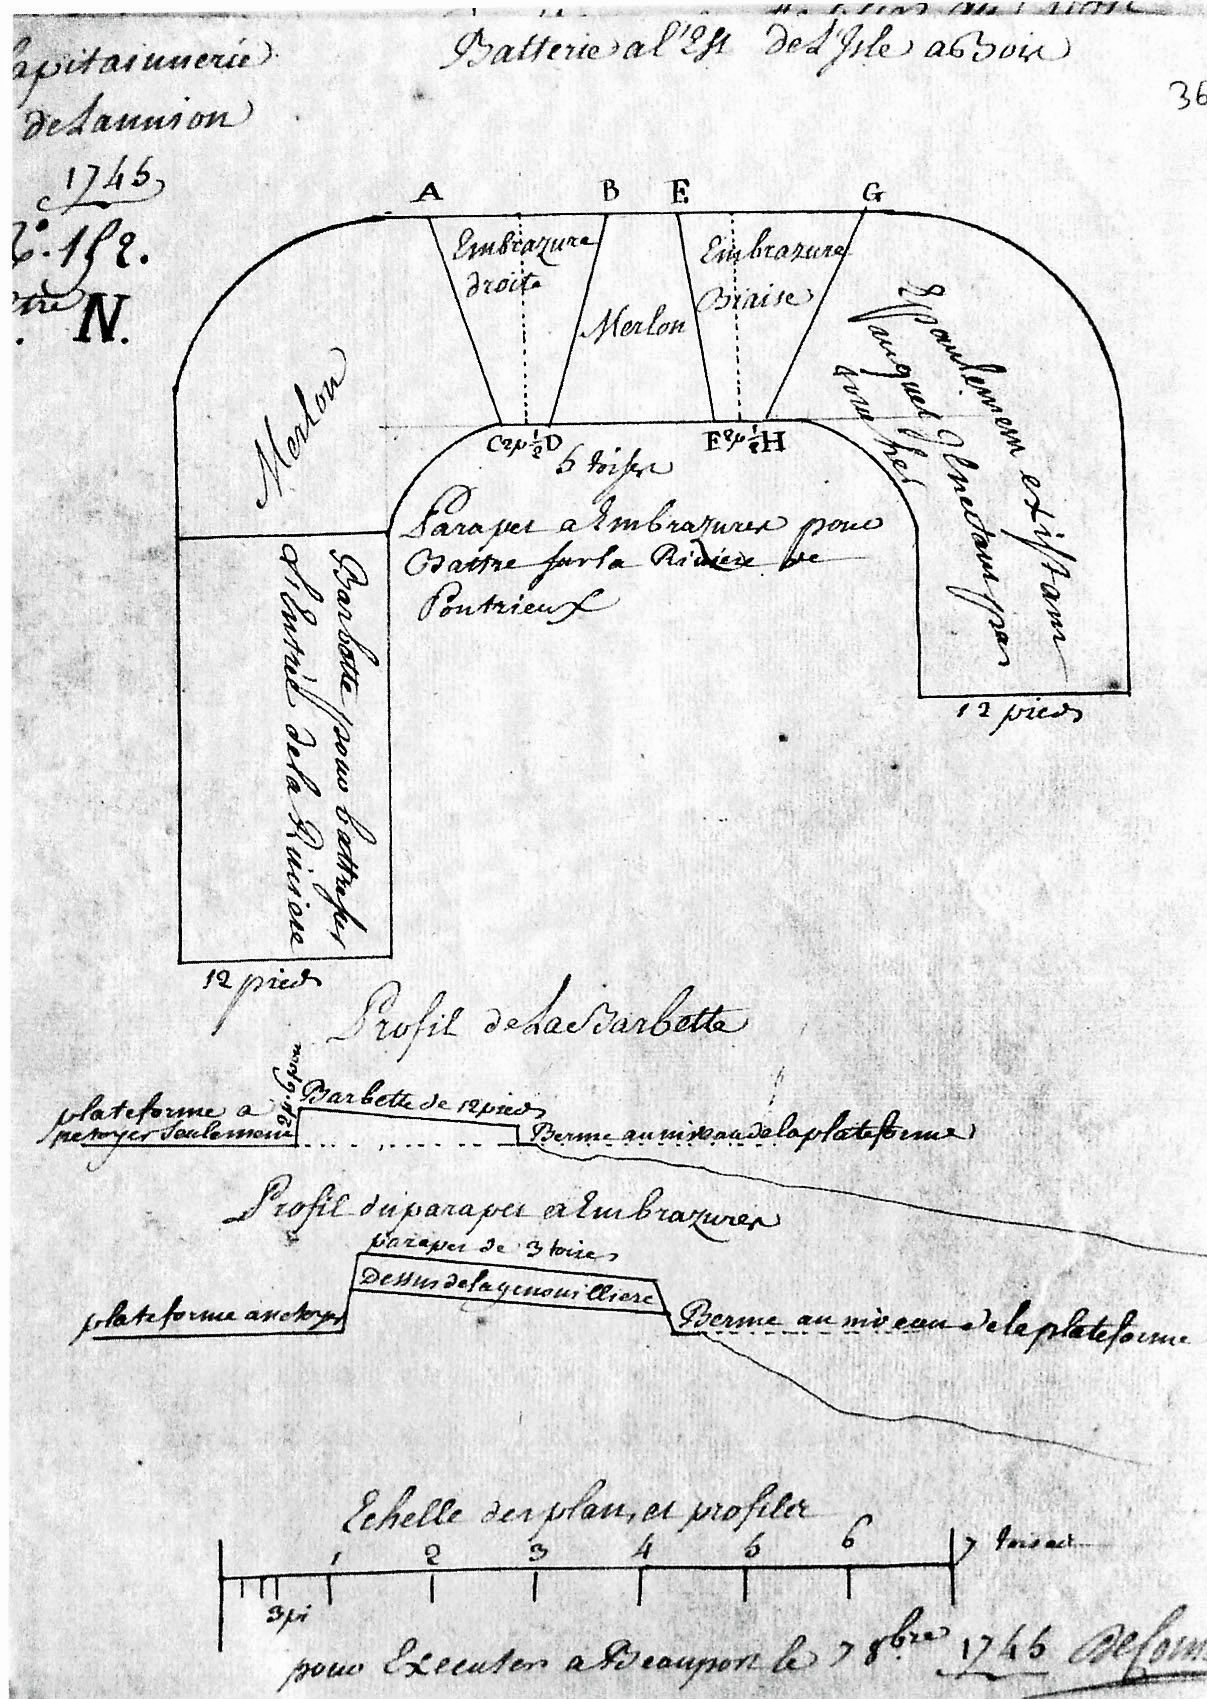 Batterie a l'Est de L'Isle a Bois
apitainnerie
de Lannion
36
1745
N.
A B E G
Embrazure
droite
Embrazure
Biaise
Merlon
Merlon
Epaulement existant
auquel Il ne faut pas
toucher
C 2p 1/2 D
F 2p 1/2 H
5 toises
Parapet a Embrazures pour
Battre sur la Riviere de
Pontrieux
Barbette pour battre sur
L'Entrée de la Riviere
12 pieds
12 pieds
Profil de La Barbette
Barbette de 12 pieds
plateforme a
netoyer seulement
Berme au niveau de la plateforme
Profil du parapet a Embrazures
parapet de 3 toises
Dessus de la genouilliere
plateforme a netoyer
Berme au niveau de la plateforme
Echelle des plans et profiles
1 2 3 4 5 6 7 toises
3 pi
pour Executer a Beauport le 7 8bre 1745